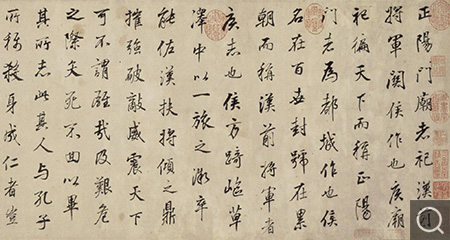 正陽門廟者祀漢前
將軍關侯作也侯廟
祀徧天下而稱正陽
門者為都城作也侯
名在百世封號在累
朝而稱漢前將軍者
侯志也侯方踦嶇草
澤中以一旅之微卒
能佐漢扶將傾之鼎
摧強破敵威震天下
可不謂難哉及艱危
之際矢死不回以畢
其所志此其人與孔子
所稱殺身成仁者豈